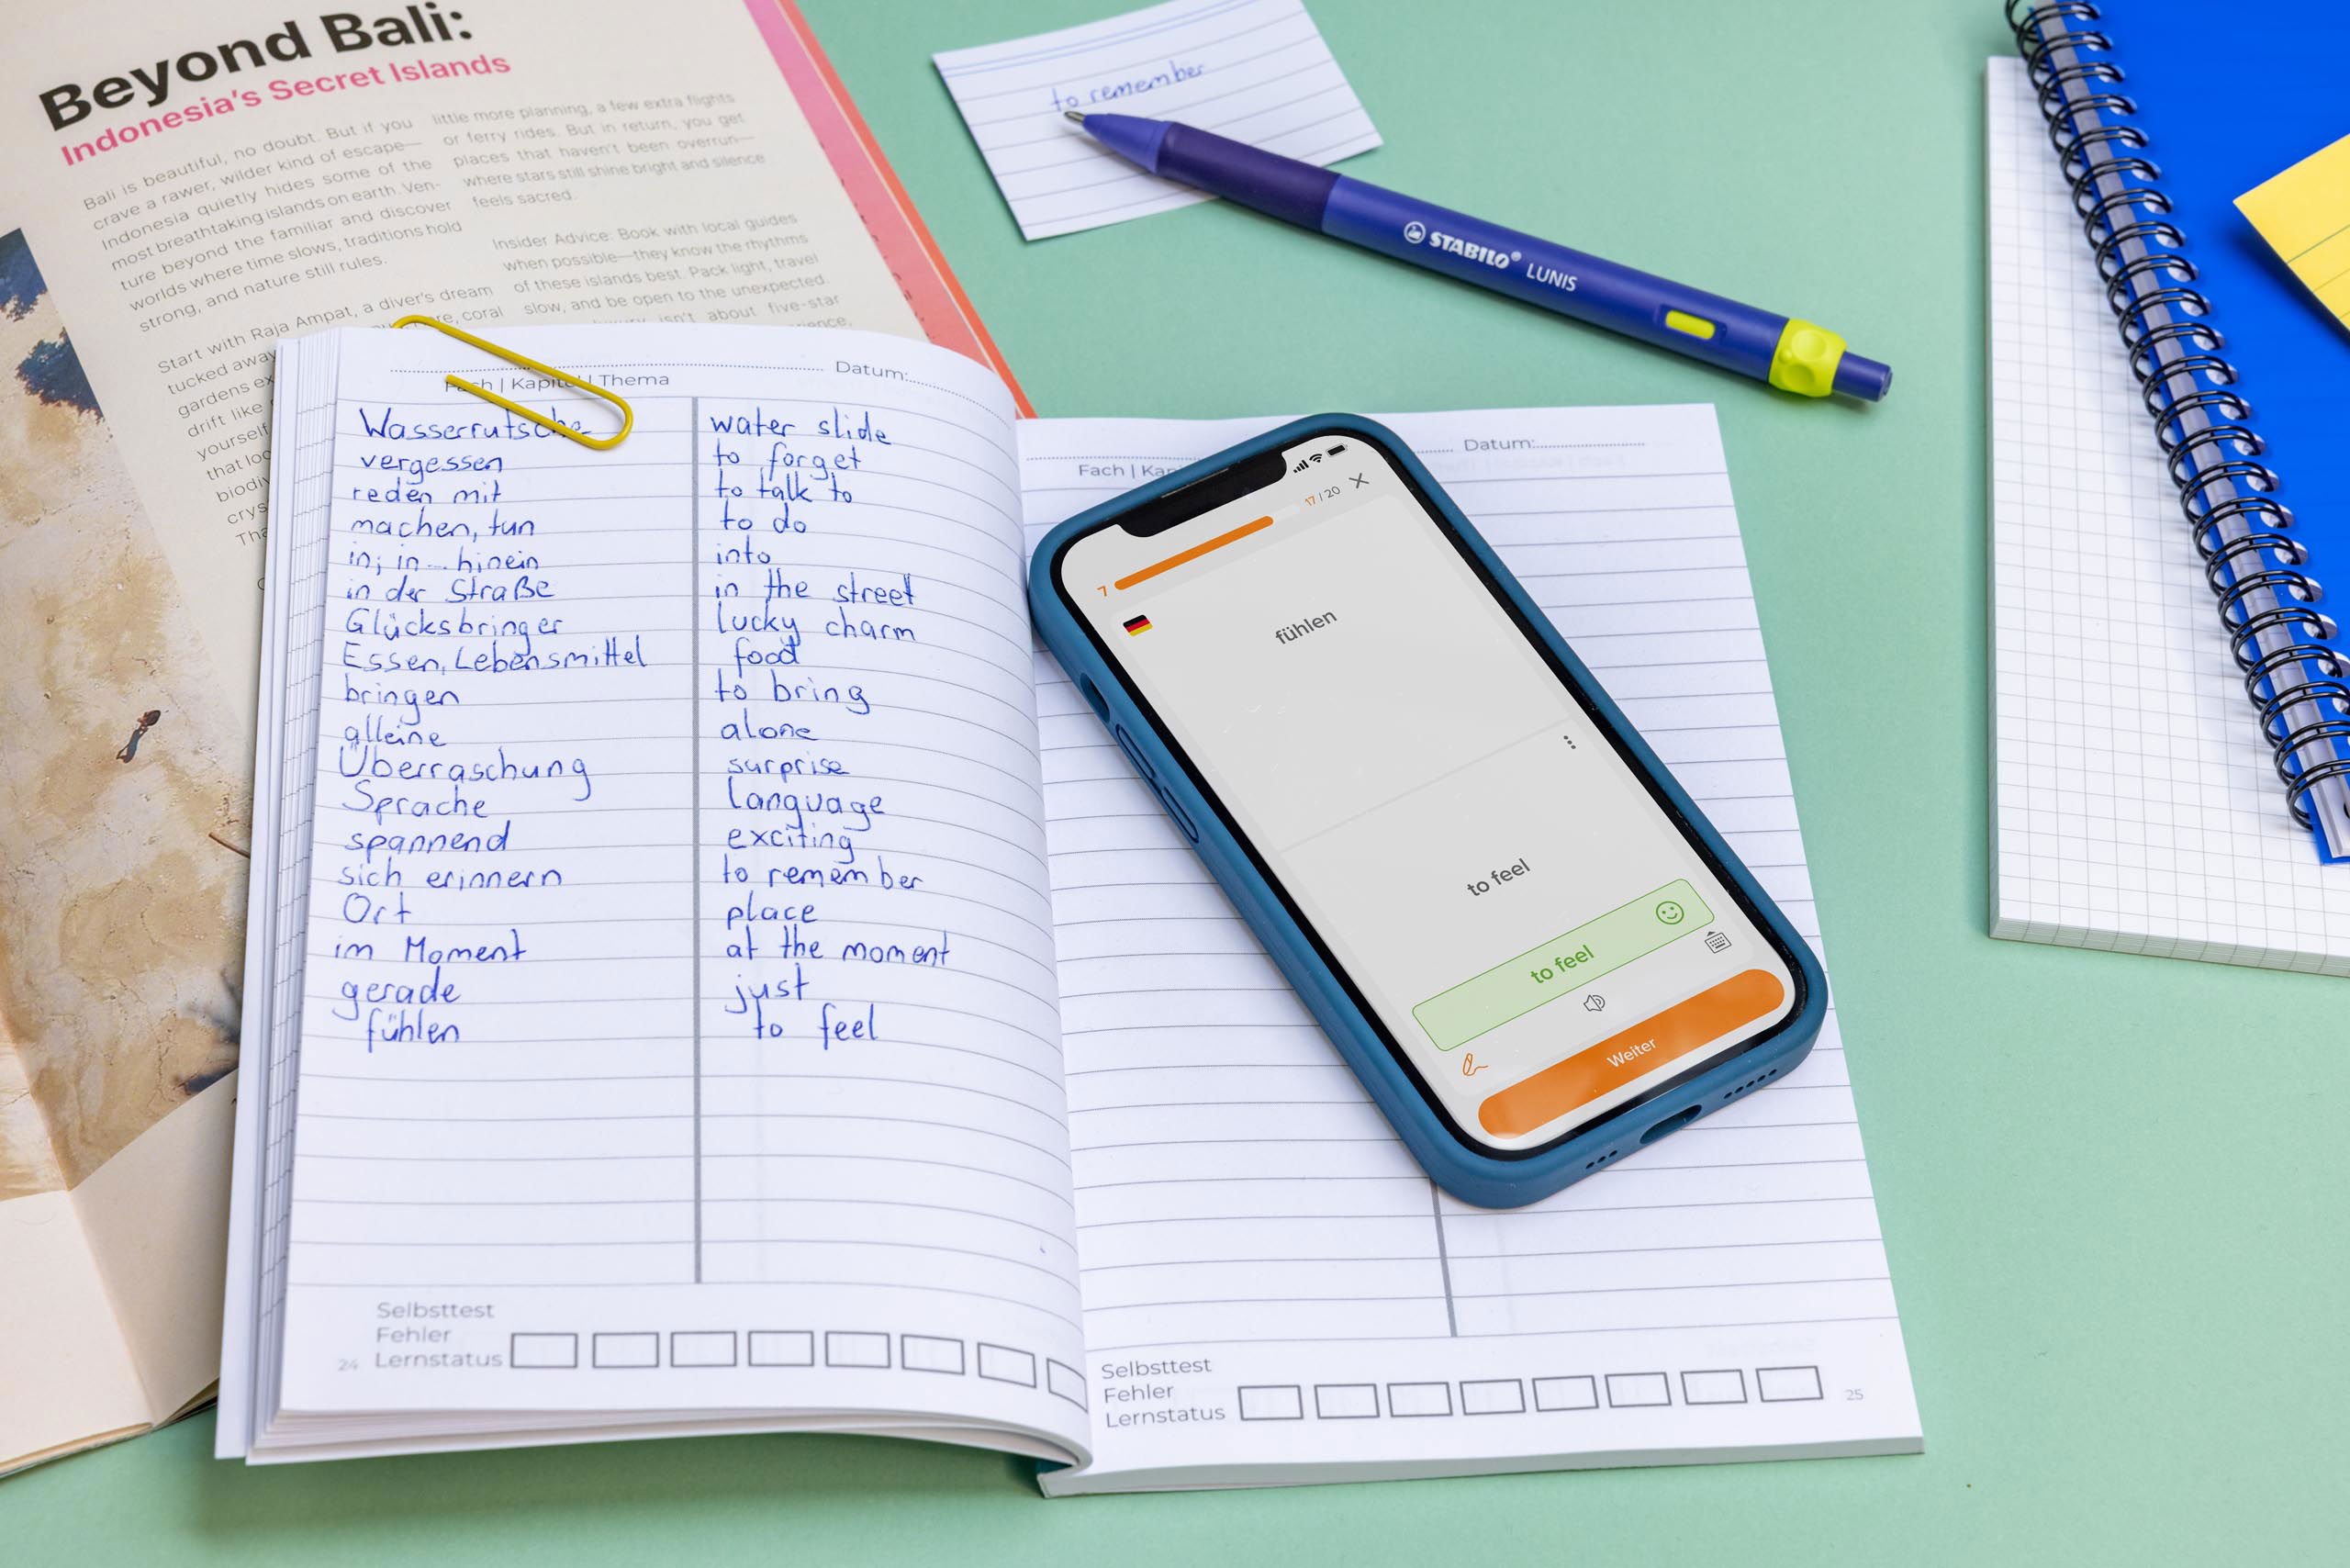 Beyond Bali:
Indonesia's Secret Islands
Bali is beautiful, no doubt. But if you
crave a rawer, wilder kind of escape—
Indonesia quietly hides some of the
most breathtaking islands on earth. Ven-
ture beyond the familiar and discover
worlds where time slows, traditions hold
strong, and nature still rules.
Start with Raja Ampat, a diver's dream
tucked away
coral
gardens
drift like
yourself
that
biodi
crys
little more planning, a few extra flights
or ferry rides. But in return, you get
places that haven't been overrun—
where stars still shine bright and silence
feels sacred.
Insider Advice: Book with local guides
when possible—they know the rhythms
of these islands best. Pack light, travel
slow, and be open to the unexpected.
isn't about five-star
to remember
STABILO® LUNIS
Datum:
Fach | Kapitel | Thema
Wasserrutsche water slide
vergessen to forget
reden mit to talk to
machen, tun to do
in; in ... hinein into
in der Straße in the street
Glücksbringer lucky charm
Essen, Lebensmittel food
bringen to bring
alleine alone
Überraschung surprise
Sprache language
spannend exciting
sich erinnern to remember
Ort place
im Moment at the moment
gerade just
fühlen to feel
Selbsttest
Fehler
24 Lernstatus
Datum:
Fach | Kap
17 / 20
7
fühlen
to feel
to feel
Weiter
Selbsttest
Fehler
Lernstatus 25